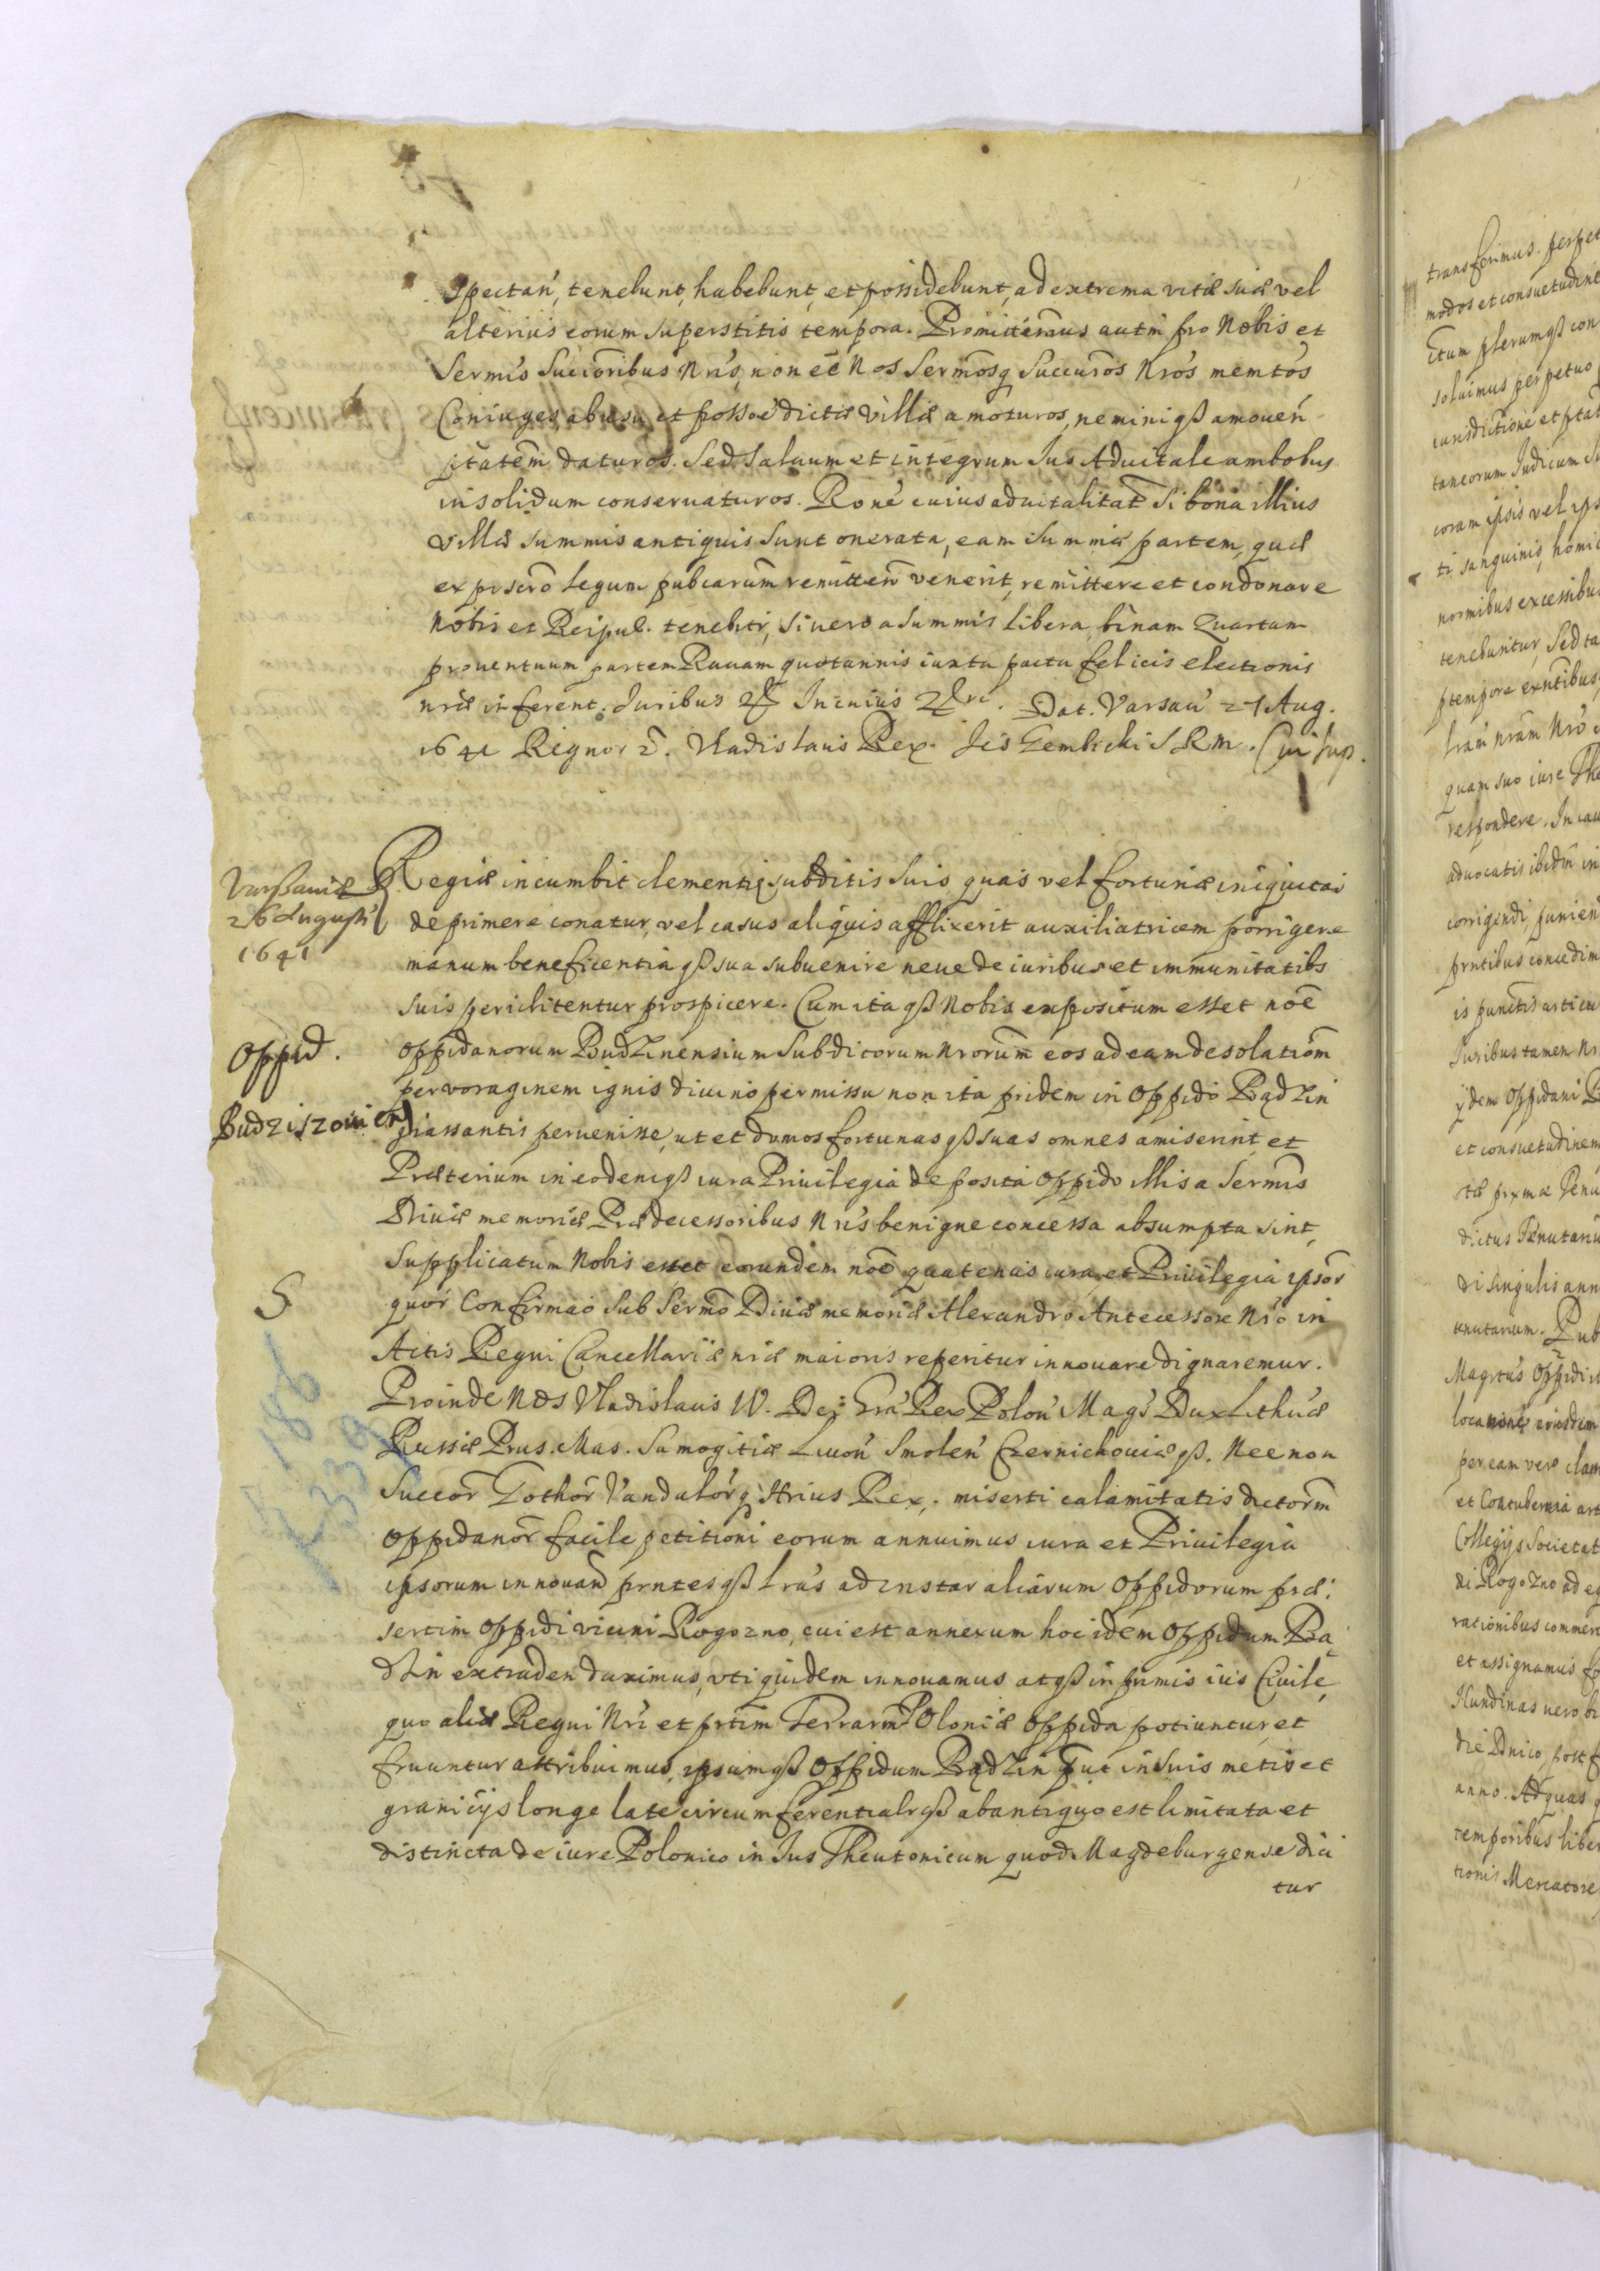 spectan, tenebunt, habebunt, et possidebunt, ad extrema vitæ suæ vel
alterius eorum superstitis tempora. Promittimus autm pro Nobis et
Sermis Succoribus Nris, non eē Nos Sermosq Succuros Nros memtos
Coniuges ab usu et possoe dictæ Villæ amoturos, neminiqß amouen
ptatem daturos. Sed saluum et integrum Ius Aduitale ambobus
in solidum conseruaturos. Rone cuius aduitalitat Si bona illius
Villæ summis antiquis sunt onerata, eam summæ partem, quæ
ex pscro legum pubcarum remitten venerit, remittere et condonare
Nobis et Reipub. tenebitr, si vero a summis libera, binam Quartam
prouentuum partem Rauam quotannis iuxta pacta felicis electionis
nræ inferent. Iuribus In cuius Dat. Varsau 27 Aug.
1641 Regnor Vladislaus Rex. Jēs Gembicki S R M. Cui sup.
Varßauiæ
26 Augusti
1641
Regiæ incumbit clementię subditis suis quas vel fortunæ iniquitas
deprimere conatur, vel casus aliquis afflixerit auxiliatricem porrigere
manum beneficentia qß sua subuenire neue de iuribus et immunitatibs
suis periclitentur prospicere. Cum itaqß Nobis expositum esset noē
Oppid.
Oppidanorum Budzinensium Subditorum Nrorum eos ad eam desolationm
per voraginem ignis diuino permissu non ita pridem in Oppido Bądzin
Budziszowien
grassantis peruenisse, ut et domos fortunasqß suas omnes amiserint, et
Præterium in eodemqß iura Priuilegia deposita Oppido illis a Sermis
Diuiæ memoriæ Prædecessoribus Nris benigne concessa absumpta sint,
Supplicatum Nobis esset eorundem noē quatenus iura, et Priuilegia ipsor
S
quor Confirmao sub Sermo Diuæ memoriæ Alexandro Antecessore Nro in
Actis Regni Cancellariæ nræ maioris reperitur innouare dignaremur.
Proinde Nos Vladislaus IV. Dei Gra Rex Polon Mags Dux Lithuæ
Russiæ Prus. Mas. Samogitiæ Liuon Smolen Czernichouiæqß. Nec non
Succor Gothor Vandalorq Hrius Rex. miserti calamitatis dictorm
Oppidanor facile petitioni eorum annuimus iura et Priuilegia
ipsorum innouand prntesqß lras ad instar aliarum Oppidorum præ:
sertim Oppidi vicini Rogozno, cui est annexum hoc idem Oppidum Bą
dzin extraden duximus, vti quidem innouamus atqß inprimis ius Ciuile,
quo aliæ Regni Nri et prtim Terrarm Poloniæ Oppida potiuntur, et
fruuntur attribuimus, ipsumqß Oppidum Bądzin put in suis metis et
granicijs longe late circumferentialrqß ab antiquo est limitata et
distincta de iure Polonico in Ius Theutonicum quod Magdeburgense dici
tur
transferimus. perpet
modos et consuetudines
itum plerumqß con
soluimus perpetuo
iurisdictione et ptat
taneorum Iudicum
coram ipsis vel ips
ti sanguinis, homic
normibus excessibus
tenebuntur, Sed ta
ptempore exntibus
lram nram Nro
quam suo iure The
respondere. In cau
aduocatis ibidm in
corrigendi, punien
prntibus concedim
is punctis articu
Iuribus tamen Nr
ijdem Oppidani B
et consuetudinem
dictus Tenutariu
di singulis ann
tenutarium. Pub
Magrtus Oppidi
locationis eiusdem
per eam vero clam
et Contubernia art
Collegijs Societat
di Rogozno ad
rationibus commer
et assignamus fo
Nundinas vero bi
die Dnico post f
anno. Ad quas
temporibus liber
tionis Mercatore